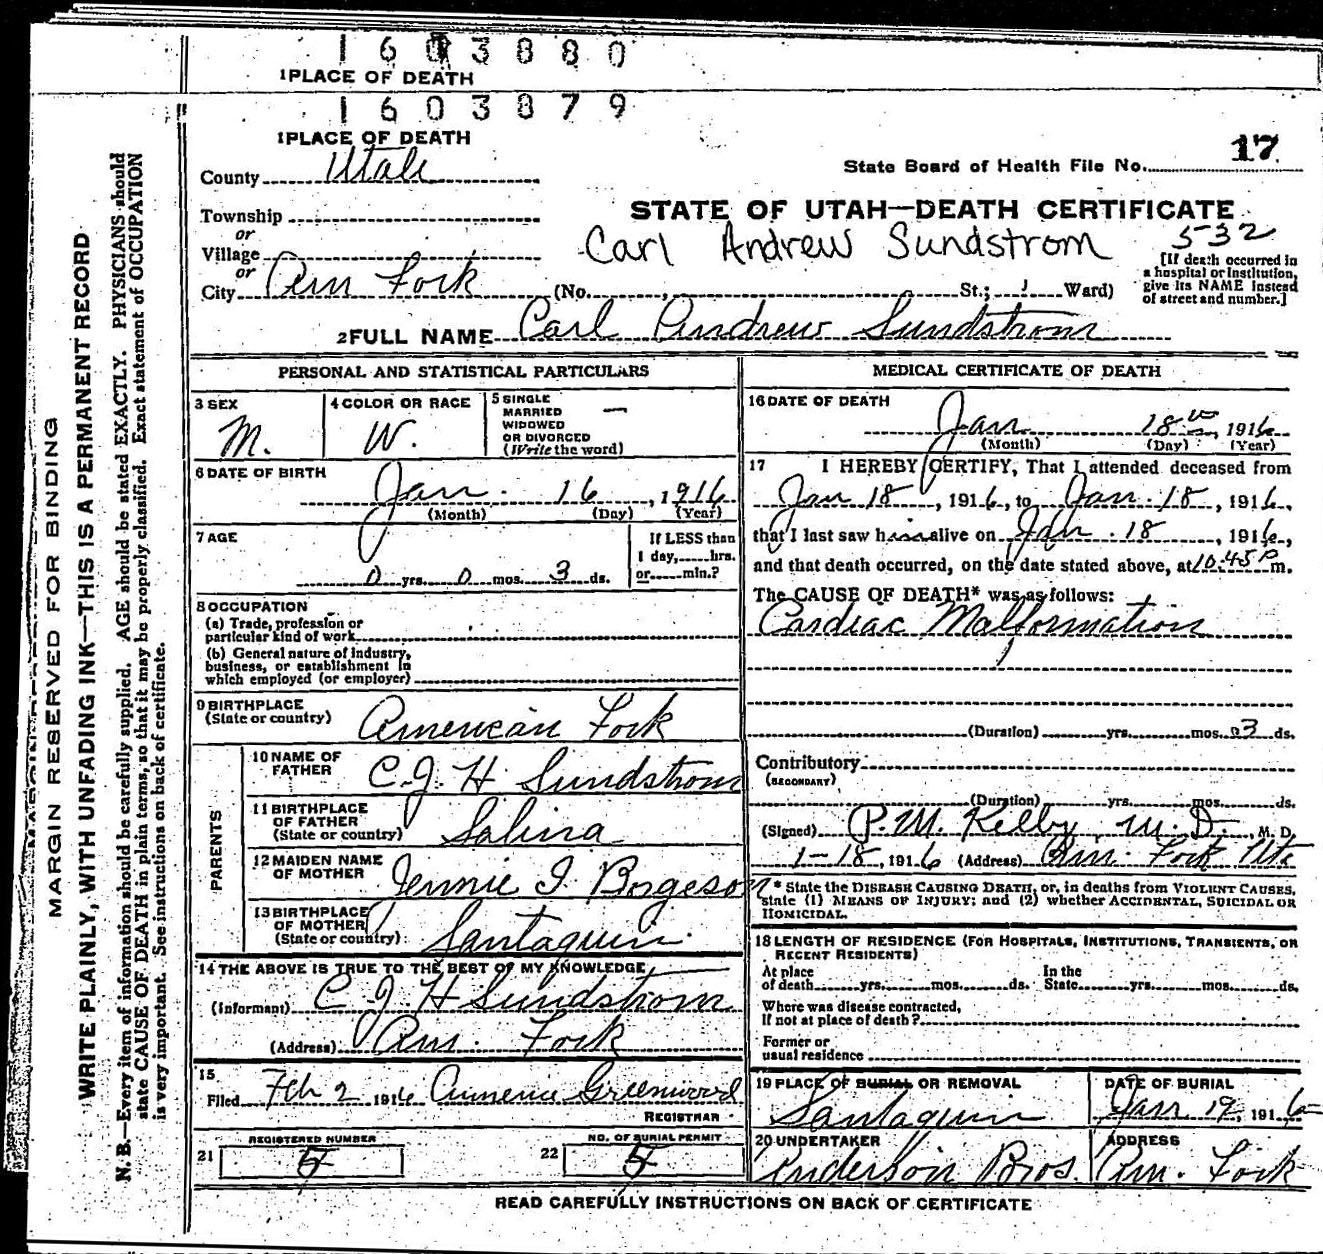 1603880
1PLACE OF DEATH
1603879
1PLACE OF DEATH
County Utah
State Board of Health File No. 17
Township
or
Village
or
City Am Fork
STATE OF UTAH—DEATH CERTIFICATE
Carl Andrew Sundstrom 532
(No. , St.; Ward)
[If death occurred in
a hospital or institution,
give its NAME instead
of street and number.]
2FULL NAME Carl Andrew Sundstrom
PERSONAL AND STATISTICAL PARTICULARS
3 SEX
M.
4 COLOR OR RACE
W.
5 SINGLE
MARRIED
WIDOWED
OR DIVORCED
(Write the word) —
6 DATE OF BIRTH
Jan. 16, 1916
(Month) (Day) (Year)
7 AGE
0 yrs. 0 mos. 3 ds.
If LESS than
1 day, hrs.
or min.?
8 OCCUPATION
(a) Trade, profession or
particular kind of work
(b) General nature of industry,
business, or establishment in
which employed (or employer)
9 BIRTHPLACE
(State or country) American Fork
PARENTS
10 NAME OF
FATHER C. J. H. Sundstrom
11 BIRTHPLACE
OF FATHER
(State or country) Salina
12 MAIDEN NAME
OF MOTHER Jennie I. Borgeson
13 BIRTHPLACE
OF MOTHER
(State or country) Santaquin
14 THE ABOVE IS TRUE TO THE BEST OF MY KNOWLEDGE
(Informant) C J H Sundstrom
(Address) Am. Fork
15
Filed Feb 2 1916 Greenwood
REGISTRAR
REGISTERED NUMBER
21
NO. OF BURIAL PERMIT
22
MEDICAL CERTIFICATE OF DEATH
16 DATE OF DEATH
Jan 18th, 1916
(Month) (Day) (Year)
17 I HEREBY CERTIFY, That I attended deceased from
Jan 18, 1916, to Jan. 18, 1916,
that I last saw him alive on Jan. 18, 1916,
and that death occurred, on the date stated above, at 10:45 P m.
The CAUSE OF DEATH* was as follows:
Cardiac Malformation
(Duration) yrs. mos. 3 ds.
Contributory
(SECONDARY)
(Duration) yrs. mos. ds.
(Signed) P. M. Kelby M. D., M. D.
1-18, 1916 (Address) Am. Fork Uta
* State the DISEASE CAUSING DEATH, or, in deaths from VIOLENT CAUSES,
state (1) MEANS OF INJURY; and (2) whether ACCIDENTAL, SUICIDAL OR
HOMICIDAL.
18 LENGTH OF RESIDENCE (FOR HOSPITALS, INSTITUTIONS, TRANSIENTS, OR
RECENT RESIDENTS)
At place
of death yrs. mos. ds.
In the
State yrs. mos. ds.
Where was disease contracted,
If not at place of death?
Former or
usual residence
19 PLACE OF BURIAL OR REMOVAL
Santaquin
DATE OF BURIAL
Jan 19, 1916
20 UNDERTAKER
Anderson Bros.
ADDRESS
Am. Fork
READ CAREFULLY INSTRUCTIONS ON BACK OF CERTIFICATE
MARGIN RESERVED FOR BINDING
WRITE PLAINLY, WITH UNFADING INK—THIS IS A PERMANENT RECORD
N. B.—Every item of information should be carefully supplied. AGE should be stated EXACTLY. PHYSICIANS should
state CAUSE OF DEATH in plain terms, so that it may be properly classified. Exact statement of OCCUPATION
is very important. See instructions on back of certificate.